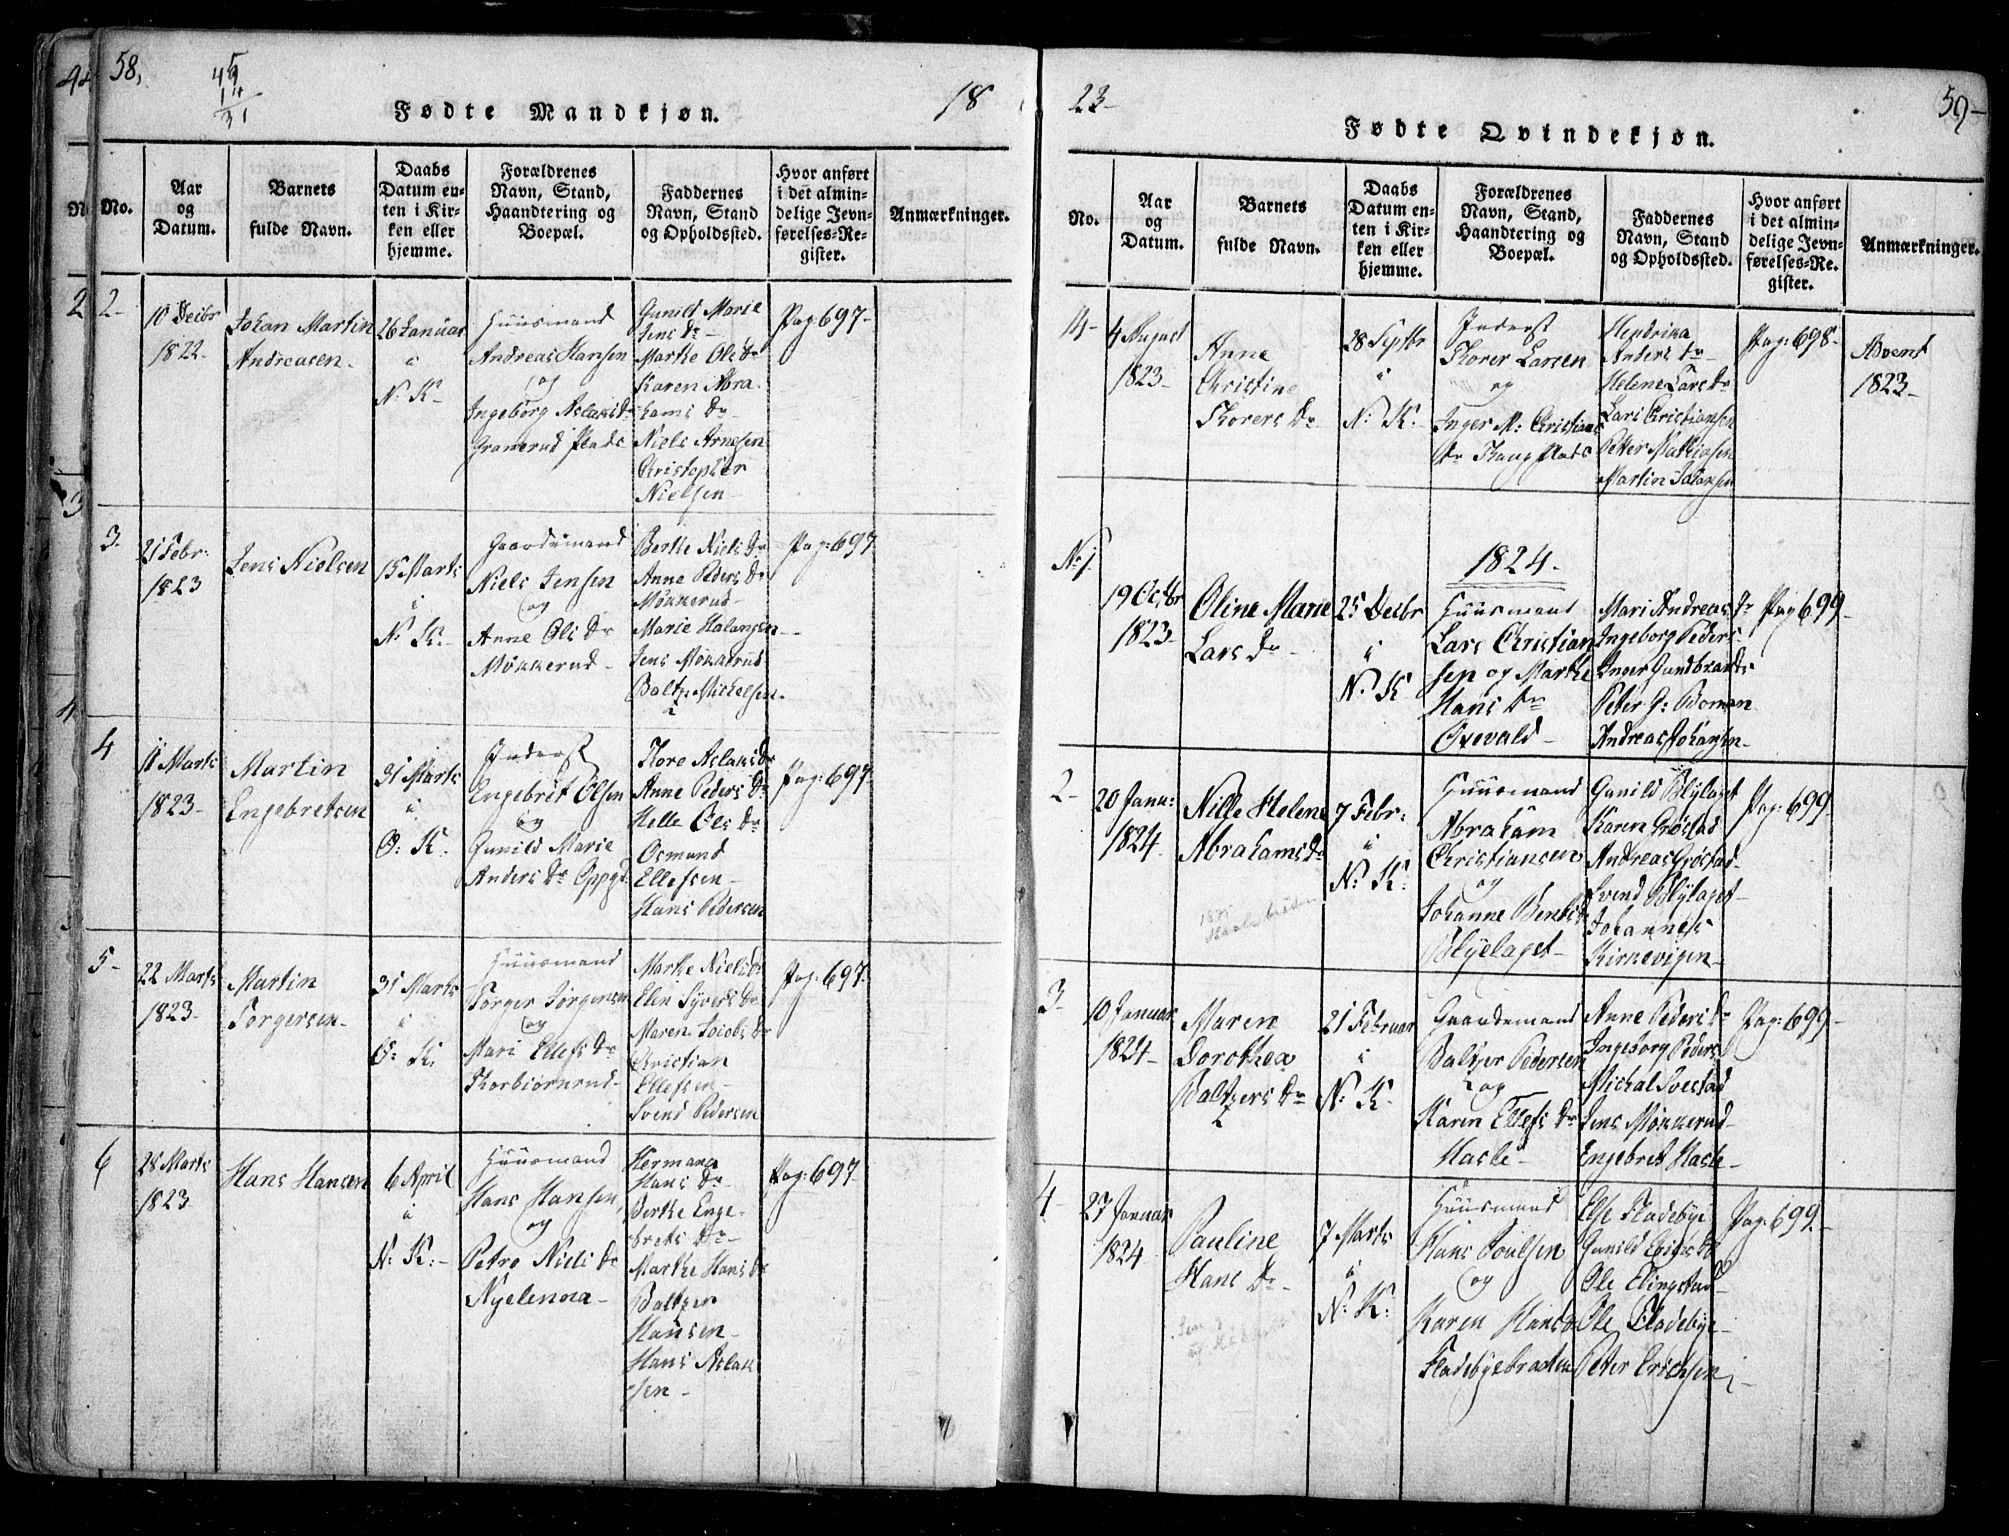 58,
45
14
31
Fødte Mandkjøn.
18
No.
Aar
og
Datum.
Barnets
fulde Navn.
Daabs
Datum en-
ten i Kir-
ken eller
hjemme.
Forældrenes
Navn, Stand,
Haandtering og
Boepæl.
Faddernes
Navn, Stand
og Opholdssted.
Hvor anført
i det almin-
delige Jevn-
førelses-Re-
gister.
Anmærkninger.
2-
10 Decbr
1822-
Johan Martin
Andreasen-
26 Januar
i
N. K-
Huusmand
Andreas Hansen
og
Ingeborg Aslaksdr
Granerud Plads
Gunild Marie
Jens Dr-
Marthe Ols Dr
Karen Abra-
hams Dr-
Niels Arnesen
Christopher
Nielsen-
Pag 697-
3.
21 Febr:
1823
Jens Nielsen
15 Marts
i
N. K.-
Gaardsmand
Niels Jensen
og
Anne Ols Dr
Mökkerud-
Berthe Niels Dr
Anne Peders Dr
Mökkerud-
Marie Halangen-
Jens Mökkerud
Baltz. Michelsen-
Pag: 697
4
11 Marts
1823-
Martin
Engebretsen
31 Marts
i
O: K:
Inderst
Engebret Olsen
og
Gunild Marie
Anders Dr Oppgd
Thore Aslaks Dr
Anne Peders Dr
Helle Ols Dr
Osmund
Ellefsen-
Hans Pedersen
Pag: 697-
5-
22 Marts
1823-
Martin
Torgersen-
31 Marts
i
O: K:
Huusmand
Torger Jörgensen
og
Mari Ellefs Dr
Thorbiörnrud-
Marthe Niels Dr
Elin Syvers Dr
Maren Jocobs Dr
Christian
Ellefsen-
Svend Pedersen
Pag: 697-
6
28 Marts
1823
Hans Hansen
6 April
i
N: K:-
Huusmand
Hans Hansen,
og
Petro Niels Dr
Nyelenna-
Hermana
Hans Dr-
Berthe Enge-
brets Dr-
Marthe Hans Dr
Baltzer
Hansen-
Hans Aslak-
sen-
Pag: 697-
23-
59-
Fødte Qvindekjøn.
No.
Aar
og
Datum.
Barnets
fulde Navn.
Daabs
Datum en-
ten i Kir-
ken eller
hjemme.
Forældrenes
Navn, Stand,
Haandtering og
Boepæl.
Faddernes
Navn, Stand
og Opholdssted.
Hvor anført
i det almin-
delige Jevn-
førelses-Re-
gister.
Anmærkninger.
14-
4 August
1823-
Anne
Christine
Thorers Dr
28 Septbr
i
N: K.
Inderst
Thorer Larsen
og
Inger M: Christians
Dr Kaug Plads
Hendrika
Anders Dr-
Helene Lars Dr
Lars Christiansen
Petter Mathiasen
Martin Johansen
Pag: 698-
Advent
1823-
No 1
1824.
19 Octbr
1823-
Oline Marie
Lars Dr-
25 Decbr
i
N: K
Huusmand
Lars Christian
sen og Marthe
Hans Dr
Oxevald-
Mari Andreas Dr
Ingeborg Peders-
Inger Gundbrands
Peter G: Boman
Andreas Johansen-
Pag 699-
2-
20 Janu:
1824-
Nille Helene
Abrahams Dr
7 Febr:
i
N: K:
Huusmand
Abraham
Christiansen
og
Johanne Bents Dr
Blylaget-
Gunild Blylaget
Karen Gröstad
Andreas Gröstad-
Svend Blylaget-
Johannes
Kirkevigen-
Pag: 699-
3-
10 Januar
1824-
Maren
Dorothea
Baltzers Dr
21 Februar
i
N: K-
Gaardsmand
Baltzer Pedersen
og
Karen Ellefs Dr
Hasle-
Anne Peders Dr
Ingeborg Peders
Michal Svestad
Jens Mökkerud-
Engebret Hasle-
Pag: 699-
4-
27 Januar
1824
Pauline
Hans Dr-
7 Marts
i
N: K:
Huusmand
Hans Poulsen
og
Karen Hans Dr
Fladebyebraaten
Else Fladebye
Gunild Erigs Dr
Ole Elingstad-
Ole Fladebye-
Peter Erichsen-
Pag: 699-